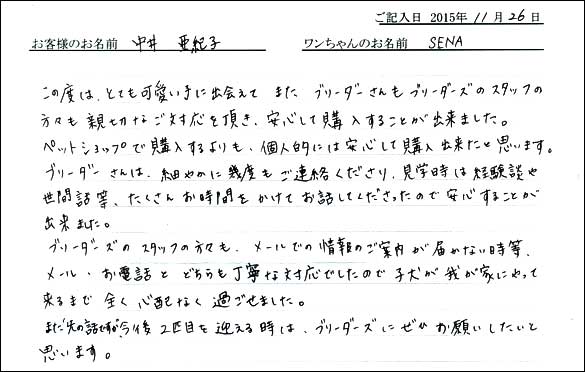 ご記入日 2015年 11月 26日
お客様のお名前 中井 亜紀子 ワンちゃんのお名前 SENA
この度は、とても可愛い子に出会えて また ブリーダーさんもブリーダーズのスタッフの
方々も 親切なご対応を頂き、安心して購入することが出来ました。
ペットショップで購入するよりも、個人的には安心して購入出来たと思います。
ブリーダーさんは、細やかに幾度もご連絡くださり、見学時は経験談や
世間話等、たくさんお時間をかけてお話してくださったので安心することが
出来ました。
ブリーダーズのスタッフの方々も、メールでの情報のご案内が届かない時等、
メール・お電話とどちらも丁寧な対応でしたので子犬が我が家にやって
来るまで全く心配なく過ごせました。
まだ先の話ですが、今後2匹目を迎える時は、ブリーダーズにぜひお願いしたいと
思います。